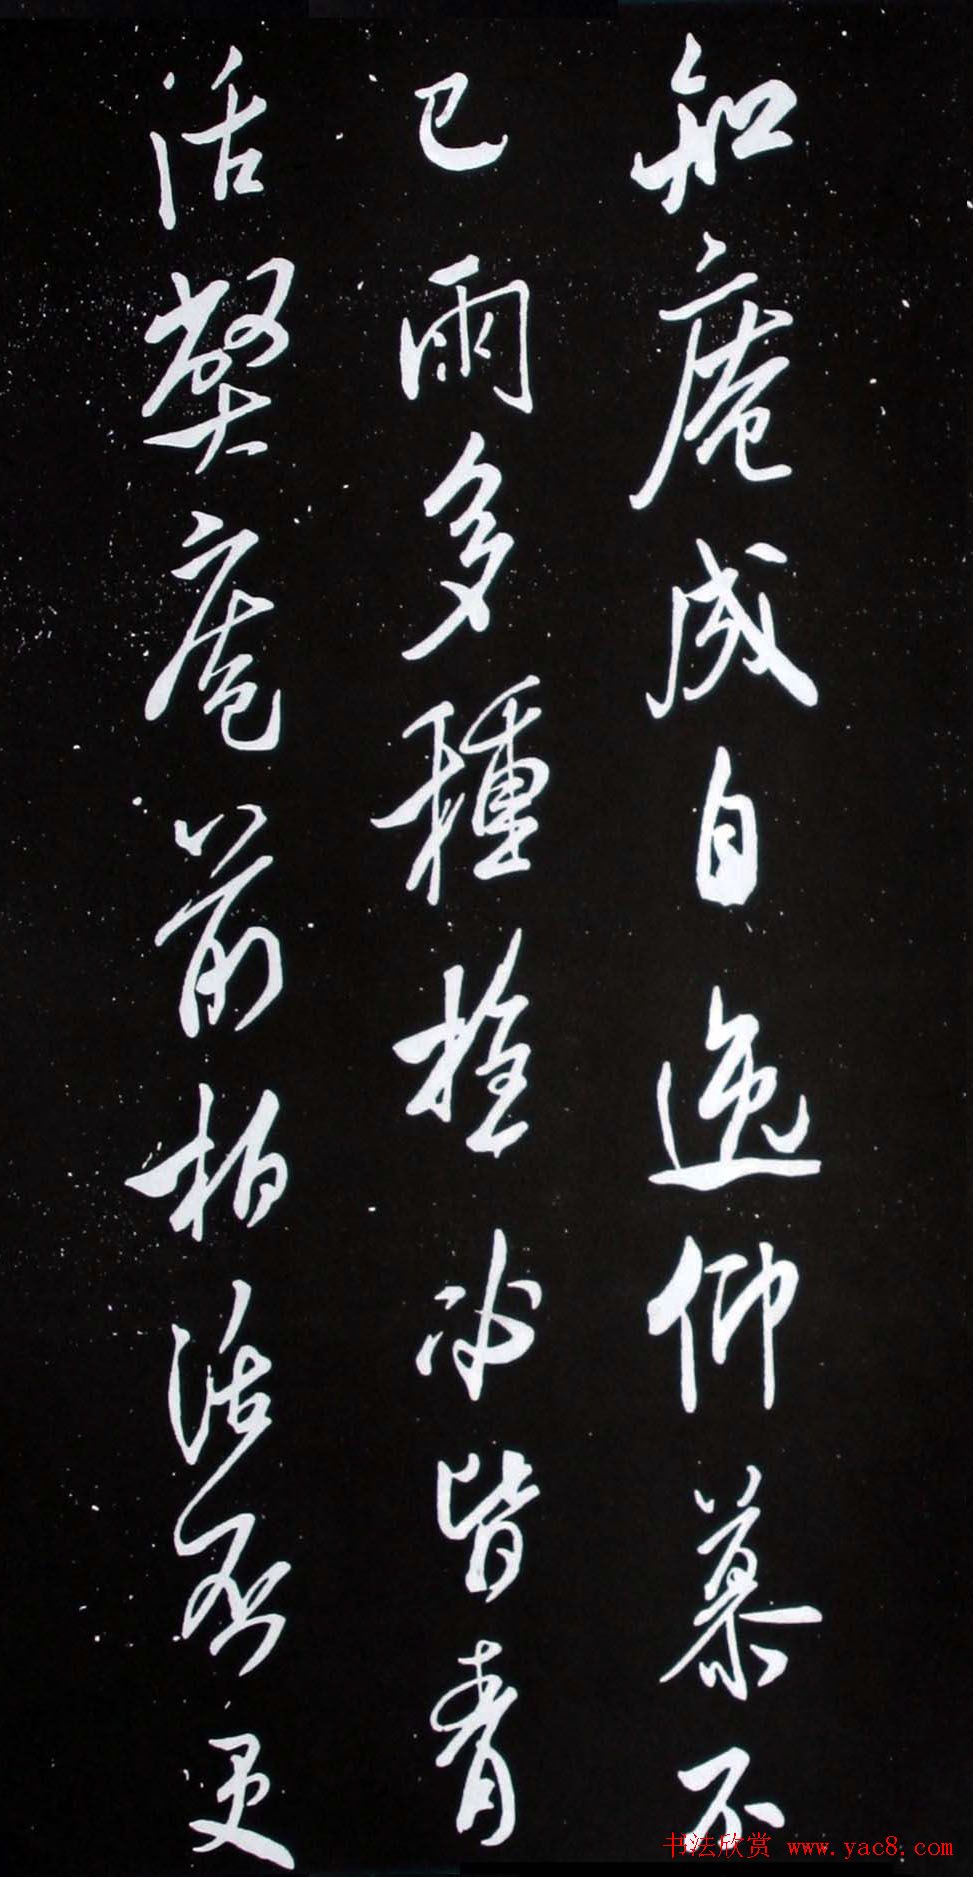 知庵成自逸仰慕不
已雨多種植必皆青
活獘庵前柏活否更
书法欣赏 www.yac8.com